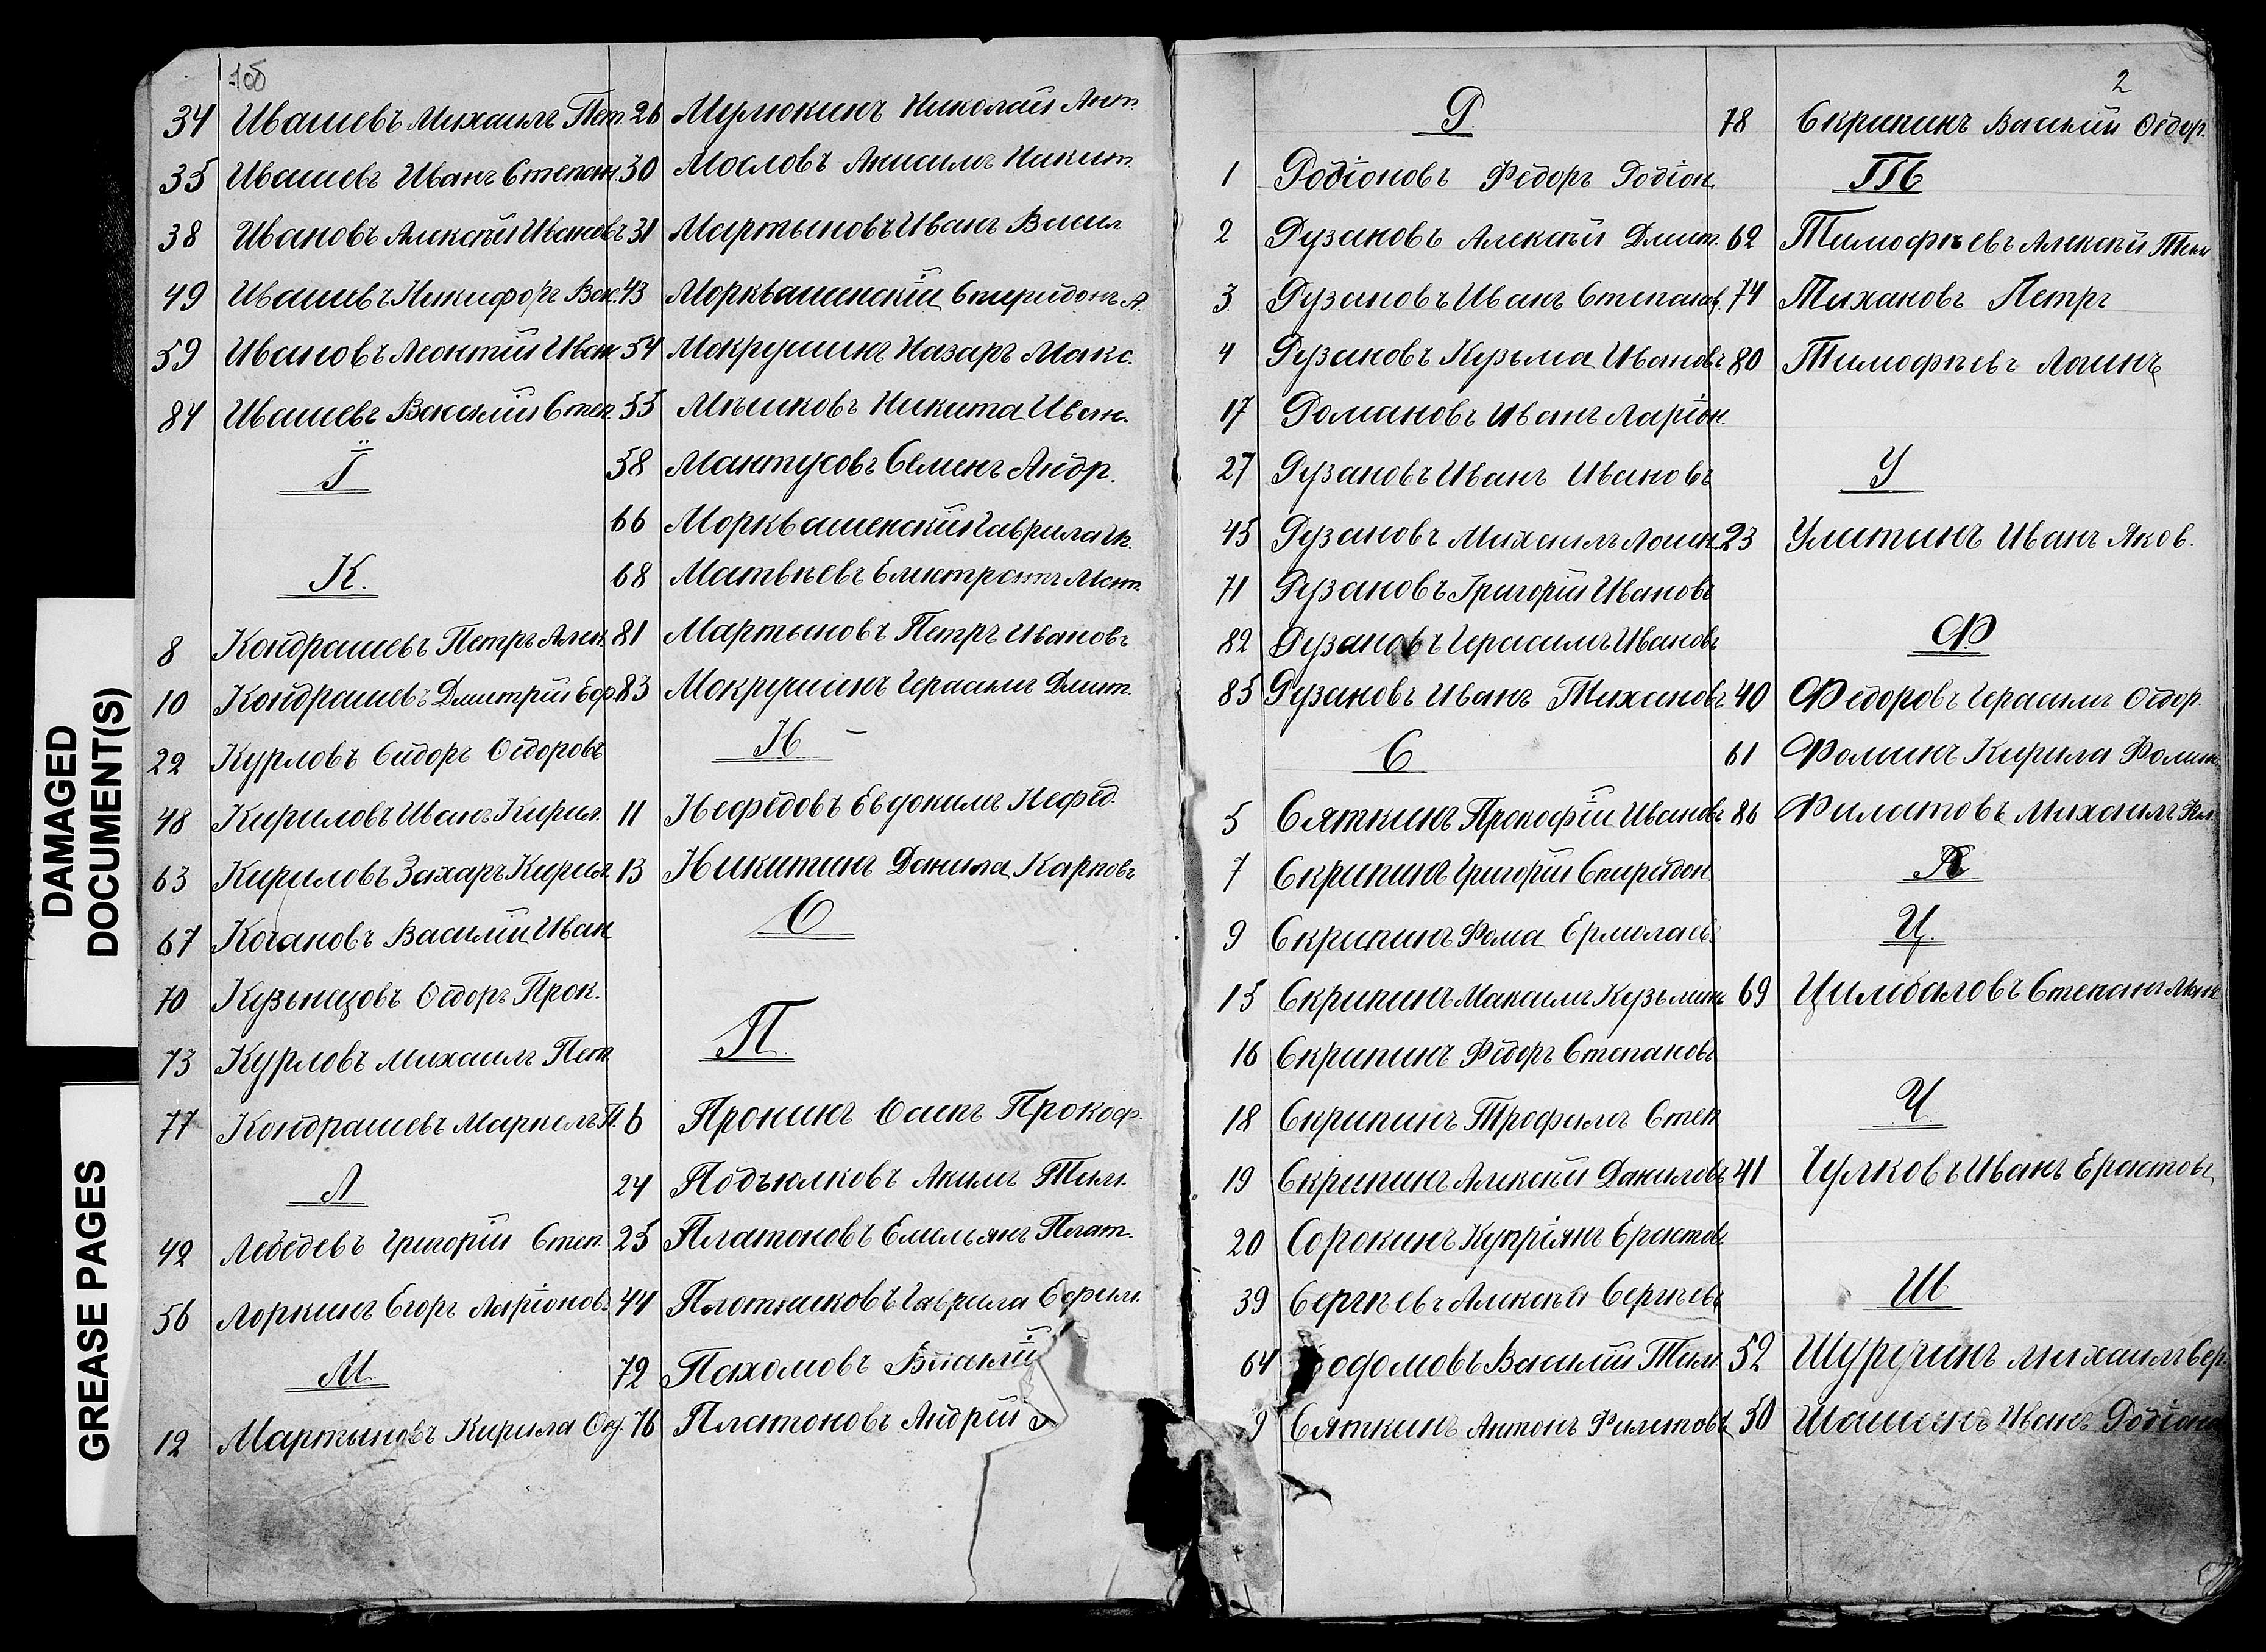 DAMAGED
DOCUMENT(S)
GREASE PAGES
1об
34 Ивашевъ Михаилъ Пет.
35 Ивашевъ Иванъ Степан.
38 Ивановъ Алексѣй Ивановъ
49 Ивашевъ Никифоръ Вас.
59 Ивановъ Леонтій Иван.
84 Ивашевъ Василій Степ.
Ї
К.
8 Кондрашевъ Петръ Алек.
10 Кондрашевъ Дмитрій Ефр.
22 Курловъ Сидоръ Ѳедоровъ
48 Кириловъ Иванъ Кирил.
63 Кириловъ Захаръ Кирил.
67 Кочановъ Василій Иван
70 Кузьнецовъ Ѳедоръ Прок.
73 Курловъ Михаилъ Пет.
77 Кондрашевъ Маркелъ П.
Л
42 Лебедевъ Григорій Степ.
56 Лоркинъ Егоръ Ларіоновъ
М.
12 Мартыновъ Кирила
26 Мулюкинъ Николай Ант.
30 Мословъ Анисимъ Никит.
31 Мартыновъ Иванъ Васил
43 Морквашинскій Спиридонъ А.
54 Мокрушинъ Назаръ Макс.
55 Мѣшковъ Никита Иван.
58 Мантусовъ Семенъ Андр.
66 Морквашенскій Гаврила
68 Матвѣевъ Елистратъ Матв.
81 Мартыновъ Петръ Ивановъ
83 Мокрушинъ Герасимъ Дмит.
Н
11 Нефедовъ Евдокимъ Нефед.
13 Никитинъ Данила Карповъ
О
П.
6 Пронинъ Осипъ Прокоф.
24 Подъюлковъ Акимъ Тим.
25 Платоновъ Емельянъ Плат.
44 Плотниковъ Гаврила Ефим.
72 Пахомовъ Василій
76 Платоновъ Андрей
2
Р.
1 Родіоновъ Федоръ Родіон.
2 Рузановъ Алексѣй Дмит.
3. Рузановъ Иванъ Степанов.
4 Рузановъ Кузьма Ивановъ
17 Романовъ Иванъ Ларіон.
27 Рузановъ Иванъ Ивановъ
45 Рузановъ Михаилъ Логин.
71 Рузановъ Григорій Ивановъ
82 Рузановъ Герасимъ Ивановъ
85 Рузановъ Иванъ Тихановъ
С
5 Сяткинъ Прокофій Ивановъ
7 Скрипинъ Григорій Спиридон
9 Скрипинъ Фома Ермолаев.
15 Скрипинъ Максимъ Кузьминъ
16 Скрипинъ Федоръ Степановъ
18 Скрипинъ Трофимъ Степ
19 Скрипинъ Алексѣй Даниловъ
20 Сорокинъ Купріянъ Ерастовъ
39 Сергѣевъ Алексѣй Сергѣевъ
64 одомовъ Василій Тим.
9 Сяткинъ Антонъ Филиповъ
78 Скрипинъ Василій Ѳедор.
Т
62 Тимофѣевъ Алексѣй Тим
74 Тихановъ Петръ
80 Тимофѣевъ Логинъ
У
23 Улитинъ Иванъ Яков.
Ф.
40 Федоровъ Герасимъ Ѳедор.
61 Фоминъ Кирила Фомин.
86 Филатовъ Михаилъ Фил.
Х
Ц.
69 Цимбаловъ Степанъ
Ч.
41 Чулковъ Иванъ Ерастовъ
Ш
52 Шуругинъ Михаилъ Сер.
50 Шашинъ Иванъ Родіонов